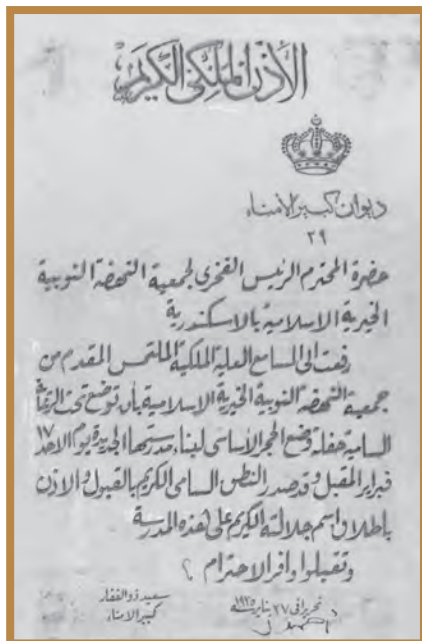 الأذن الملكى الكريم
ديوان كبير الأمناء
٢٩
حضرة المحترم الرئيس الفخرى لجمعية النهضة النوبية
الخيرية الاسلامية بالاسكندرية
رفعت الى المسامع العلية الملكية الملتمس المقدم من
جمعية النهضة النوبية الخيرية الاسلامية بأن توضع تحت الرعاية
السامية حفلة وضع الحجر الأساسى لبناء مدرستها الجديدة يوم الاحد ١٧
فبراير المقبل وقد صدر النطق السامى الكريم بالقبول والاذن
باطلاق اسم جلالته الكريم على هذه المدرسة
وتقبلوا وافر الاحترام ؟
سعيد ذو الفقار
كبير الامناء
تحريرا فى ٢٧ يناير سنة